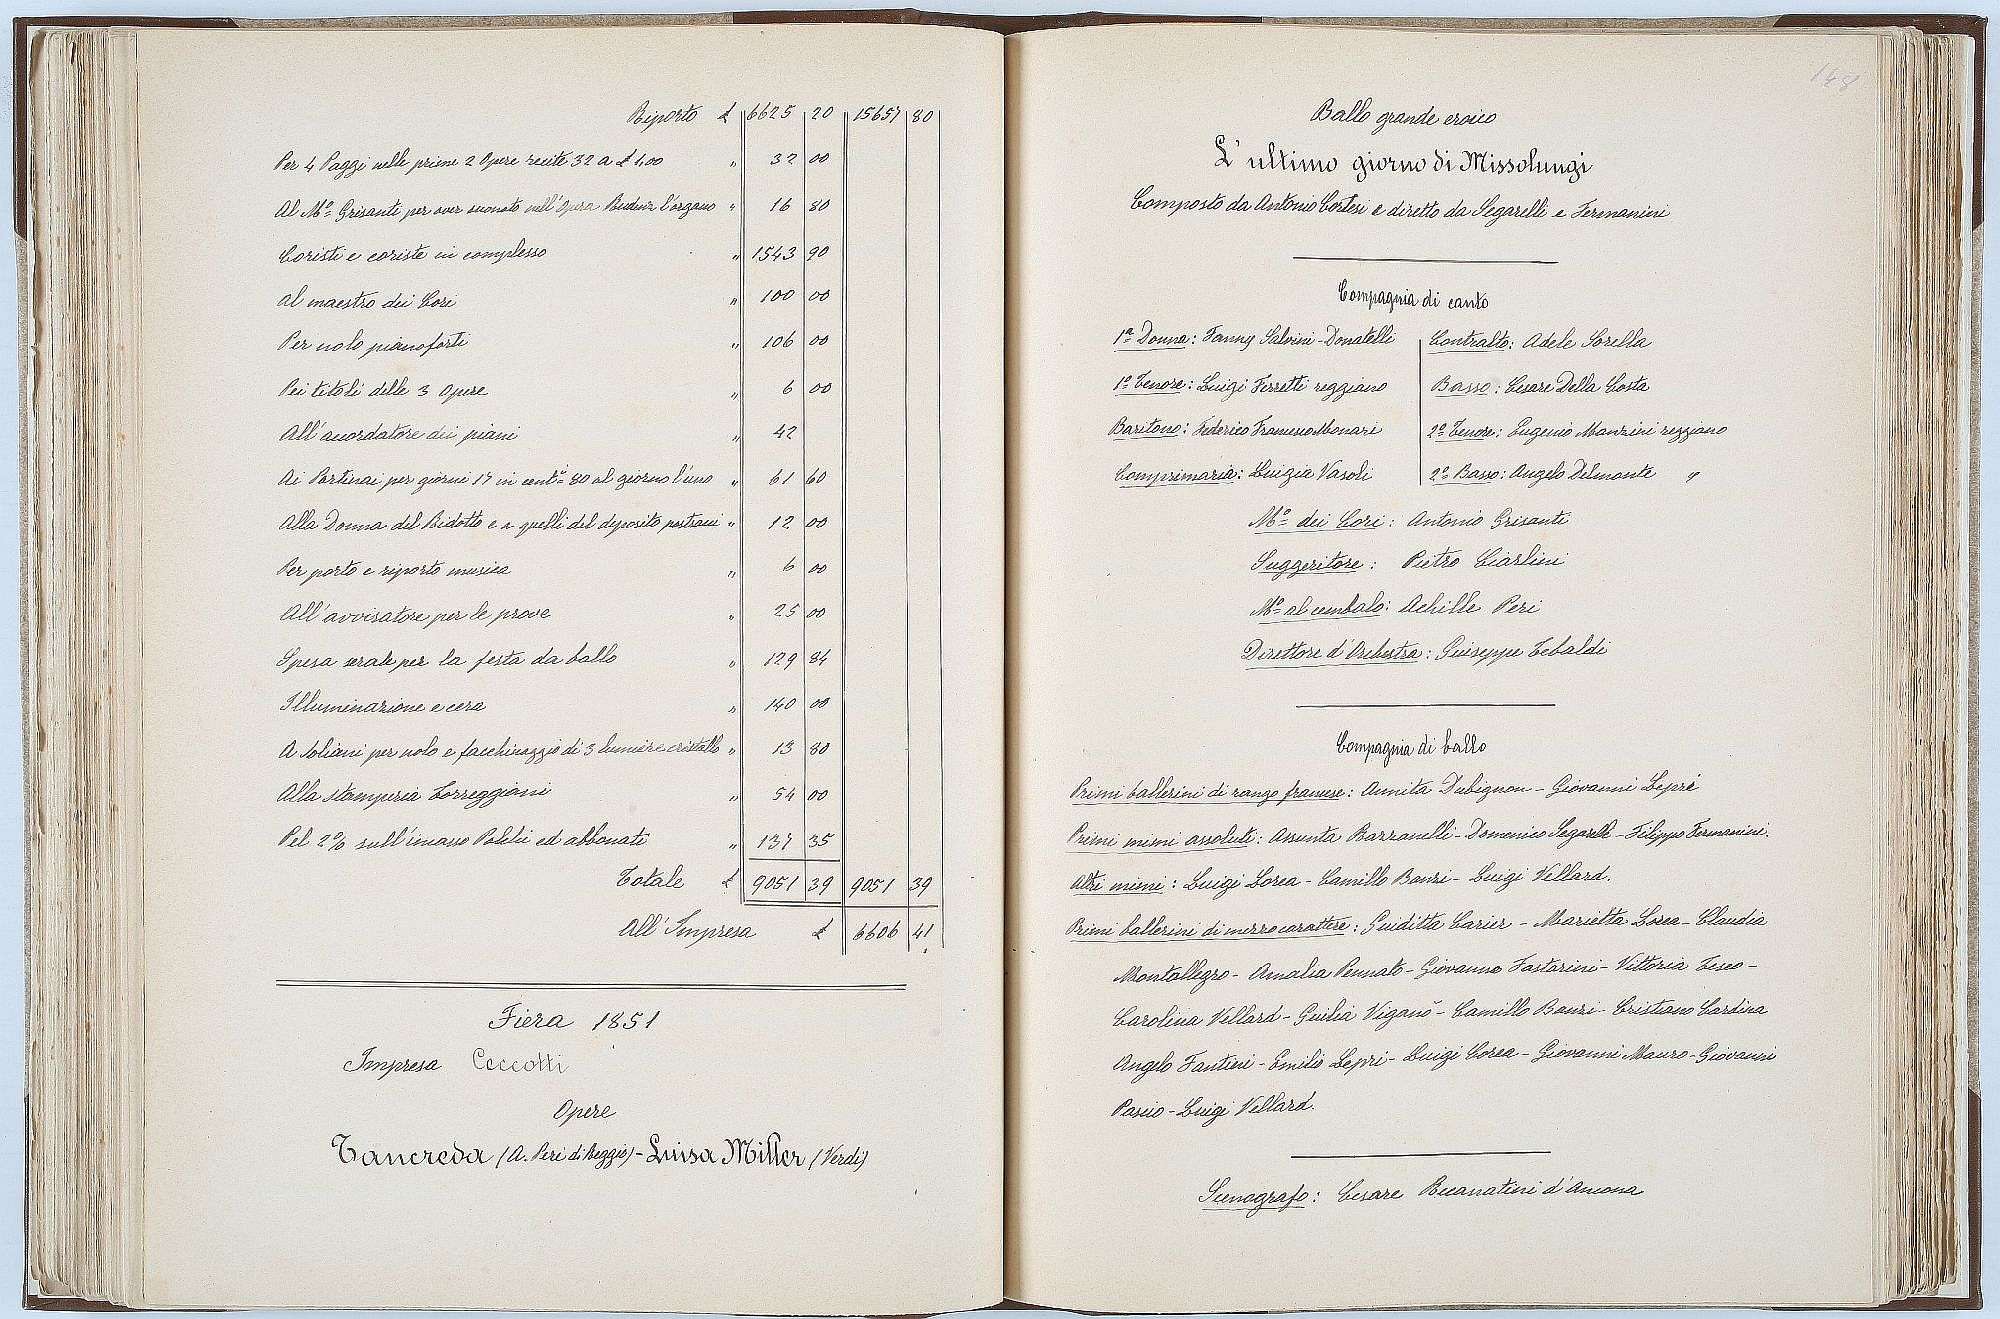 Riporto £ 6625 20 15657 80
Per 4 Paggi nelle prime 2 Opere recite 32 a £ 1,00 " 32 00
Al Mo Grisanti per aver suonato nell'Opera l'organo " 16 80
Coristi e coriste in complesso " 1543 90
Al maestro dei Cori " 100 00
Per nolo pianoforti " 106 00
Pei titoli delle 3 Opere " 6 00
All'accordatore dei piani " 42
Ai Portinai per giorni 17 in cent.i 80 al giorno l'uno " 61 60
Alla Donna del Ridotto e a quelli del deposito pastrani " 12 00
Per porto e riporto musica " 6 00
All'avvisatore per le prove " 25 00
Spesa serale per la festa da ballo " 129 84
Illuminazione e cera " 140 00
A Soliani per nolo e facchinaggio di 3 lumiere cristallo " 13 80
Alla stamperia Torreggiani " 54 00
Pel 2% sull'incasso Palchi ed abbonati " 137 35
Totale £ 9051 39 9051 39
All'Impresa £ 6606 41
Fiera 1851
Impresa Ceccotti
Opere
Tancreda (A. Peri di Reggio) - Luisa Miller (Verdi)
148
Ballo grande eroico
L'ultimo giorno di Missolungi
Composto da Antonio Cortesi e diretto da Segarelli e Fermanini
Compagnia di canto
1a Donna: Fanny Salvini-Donatelli
1o Tenore: Luigi Ferretti reggiano
Baritono: Federico Francesco Monari
Comprimaria: Luigia Vasoli
Contralto: Adele Sorella
Basso: Cesare Della Costa
2o Tenore: Eugenio Manzini reggiano
2o Basso: Angelo Delmonte "
Mo dei Cori: Antonio Grisanti
Suggeritore: Pietro Ciarlini
Mo al cembalo: Achille Peri
Direttore d'Orchestra: Guiseppe Tebaldi
Compagnia di ballo
Primi ballerini di rango francese: Annita Dubignon - Giovanni Lepré
Primi mimi assoluti: Assunta Barzanelli - Domenico Segarelli - Filippo Fermanini.
Altri mimi: Luigi Lorea - Camillo Banzi - Luigi Vellard.
Primi ballerini di mezzo carattere: Guiditta Carier - Marietta Lorea - Claudia
Montallegro - Amalia Pennato - Giovanna Fastarini - Vittoria Teseo -
Carolina Vellard - Guilia Viganò - Camillo Banzi - Cristiano Cardina
Angelo Fantini - Emilio Lepri - Luigi Corea - Giovanni Mauro - Giovanni
Pascio - Luigi Vellard.
Scenografo: Cesare Recanatini d'Ancona